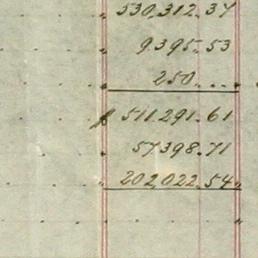 530,312.37
9,395.53
250....
$ 511,291.61
57,398.71
202,022.54